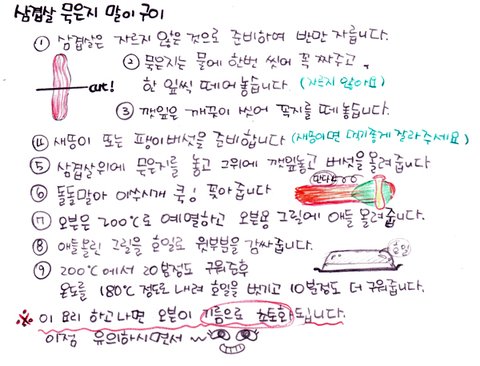 삼겹살 묵은지 말이 구이
① 삼겹살은 자르지 않은 것으로 준비하여 반만 자릅니다.
cut!
② 묵은지는 물에 한번 씻어 꼭 짜주고,
한 잎씩 떼어 놓습니다. (자르지 않아요)
③ 깻잎은 깨끗이 씻어 꼭지를 떼 놓습니다.
④ 새송이 또는 팽이버섯을 준비합니다 (새송이면 먹기좋게 잘라주세요)
⑤ 삼겹살위에 묵은지를 놓고 그위에 깻잎놓고 버섯을 올려줍니다
⑥ 돌돌말아 이쑤시개 콕! 꽂아줍니다
⑦ 오븐은 200℃로 예열하고 오븐용 그릴에 얘들 올려줍니다.
⑧ 얘들올린 그릴을 호일로 윗부분을 감싸줍니다.
호일
⑨ 200℃에서 20분정도 구워준후
온도를 180℃ 정도로 내려 호일을 벗기고 10분정도 더 구워줍니다.
※ 이 요리 하고나면 오븐이 기름으로 초토화 됩니다.
이점 유의하시면서 ~